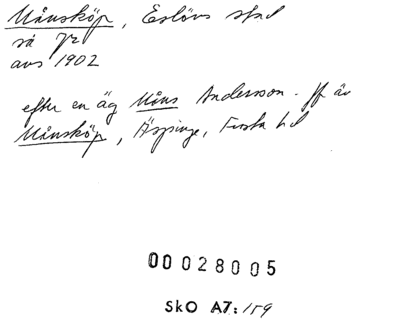 Månsköp, Eslövs stad
så 
avs 1902
efter en äg Måns Andersson. Jf äv
Månsköp, Äspinge, Frosta hd
00028005
SkO A7:159